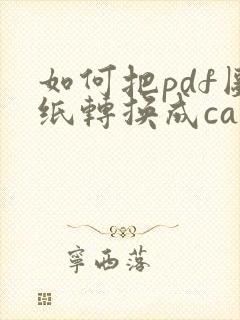 如何把pdf
纸轉换成ca
寧西落